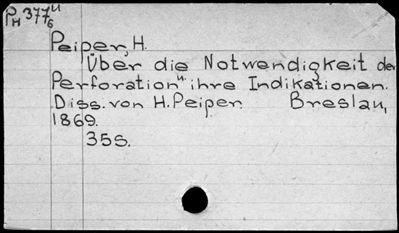 PH 377 u/6
Peiper, H.
Über die Notwendigkeit der
Perforation u. ihre Indikationen.
Diss. von H. Peiper. Breslau,
1869.
35S.